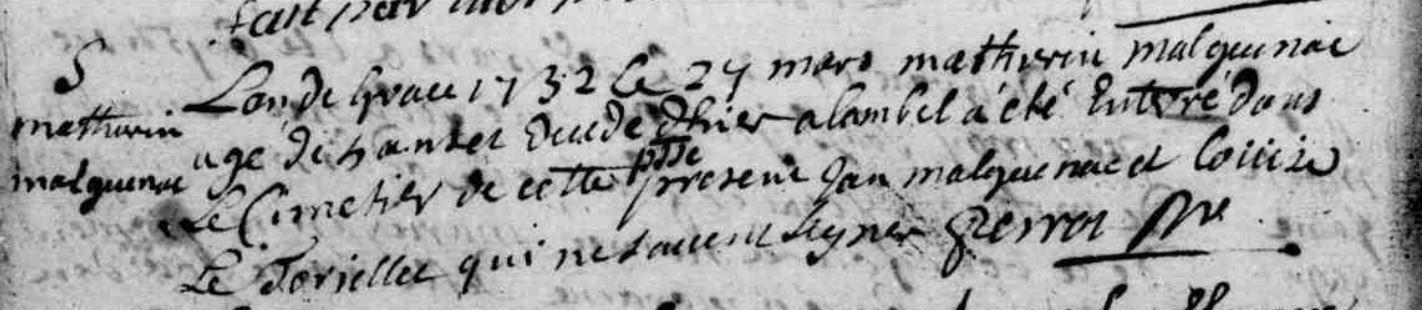 fait par moi
S
mathurin
malguenac
L'an de Grace 1732 le 27 mars mathurin malguenac
agé de ans et decede d'hier a lambel a été Enterré dans
Le Cimetier de cette psse present Jan malguenac et Louise
Le Toriellec qui ne savent signer Perrot ptre